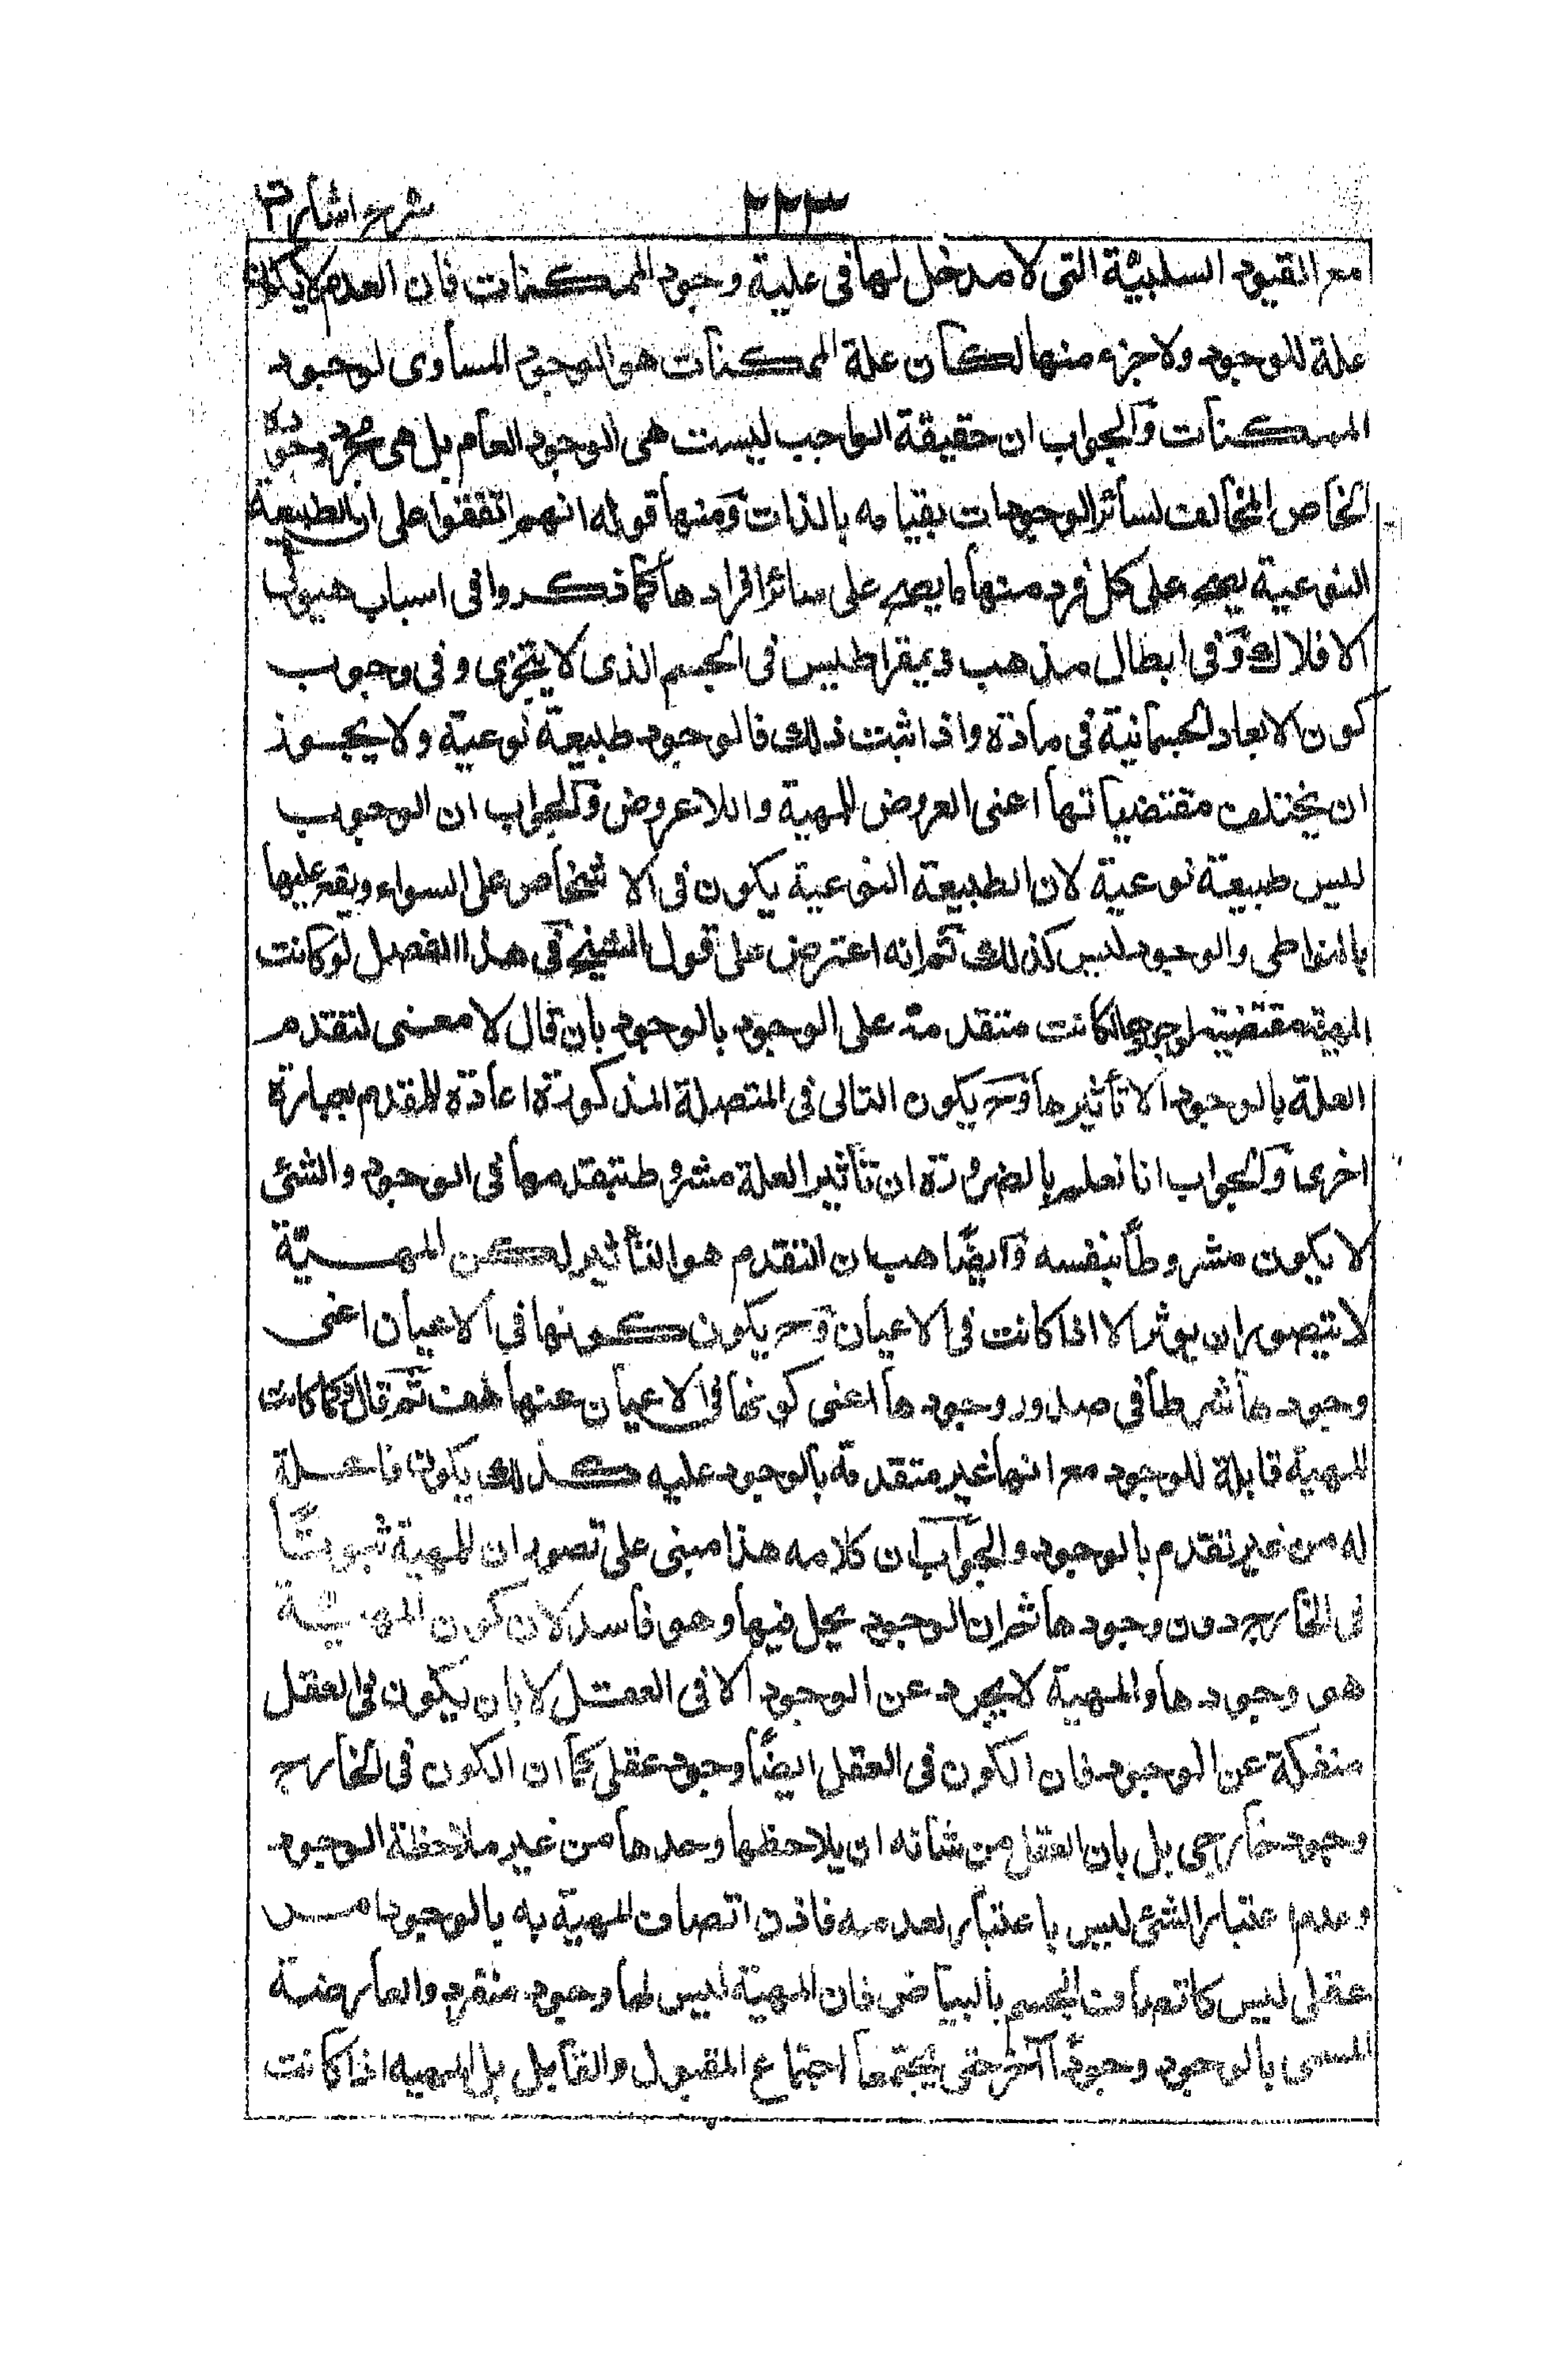 شرح اشارات
٢٢٣
مع القيود السلبية التى لا مدخل لها فى علية وجود الممكنات فان العدم لا يكون
علة للوجود ولا جزء منها لكان علة الممكنات هو الوجود المساوى لوجود
الممكنات والجواب ان حقيقة الواجب ليست هى الوجود العام بل هى مجرد وجوده
الخاص المخالف لسائر الوجودات بقيامه بالذات ومنها قوله انهم اتفقوا على ان الطبيعة
النوعية يصح على كل فرد منها ما يصح على سائر افرادها كما ذكروا فى اسباب هيولى
الافلاك وفى ابطال مذهب ديمقراطيس فى الجسم الذى لا يتجزى وفى وجوب
كون الابعاد الجسمانية فى مادة واذا ثبت ذلك فالوجود طبيعة نوعية ولا يجوز
ان يختلف مقتضياتها اعنى العروض للمهية واللاعروض والجواب ان الوجوب
ليس طبيعة نوعية لان الطبيعة النوعية يكون فى الاشخاص على السواء ويقع عليها
بالتواطى والوجود ليس كذلك ثم انه اعترض على قول الشيخ فى هذا الفصل لو كانت
المهية مقتضية لوجودها لكانت متقدمة على الوجود بالوجود بان قال لا معنى لتقدم
العلة بالوجود الا تأثيرها وح يكون التالى فى المتصلة المذكورة اعادة للمقدم بعبارة
اخرى والجواب انا نعلم بالضرورة ان تأثير العلة مشروط بتقدمها فى الوجود والشئ
لا يكون مشروطا بنفسه وايضا هب ان التقدم هو التأثير لكن المهية
لا يتصور ان يوثر الا اذا كانت فى الاعيان وح يكون كونها فى الاعيان اعنى
وجودها شرطا فى صدور وجودها اعنى كونها فى الاعيان عنها هف ثم قال فكما كانت
المهية قابلة للوجود مع انها غير متقدمة بالوجود عليه كذلك يكون فاعلة
له من غير تقدم بالوجود والجواب ان كلامه هذا مبنى على تصور ان للمهية ثبوتا
فى الخارج دون وجودها ثم ان الوجود يحل فيها وهو فاسد لان كون المهية
هو وجودها والمهية لا يجرد عن الوجود الا فى العقل لا بان يكون فى العقل
منفكة عن الوجود فان الكون فى العقل ايضا وجود عقلى كما ان الكون فى الخارج
وجود خارجى بل بان العقل من شانه ان يلاحظها وحدها من غير ملاحظة الوجود
وعدم اعتبار الشئ ليس باعتبار لعدمه فاذن اتصاف المهية به بالوجود امر
عقلى ليس كاتصاف الجسم بالبياض فان المهية ليس لها وجود منفرد والعارضة
المسمى بالوجود وجودا آخر حتى يجتمعا اجتماع المقبول والقابل بل المهية اذا كانت